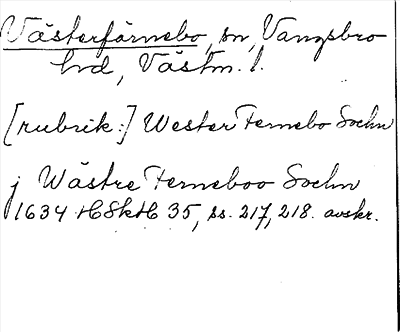 Västerfärnebo, sn, Vangsbro
hd, Västm. l.
[rubrik:] Wester Fernebo Sochn
j Wästre Ferneboo Sochn
1634 HSkH 35, ss. 217, 218. avskr.